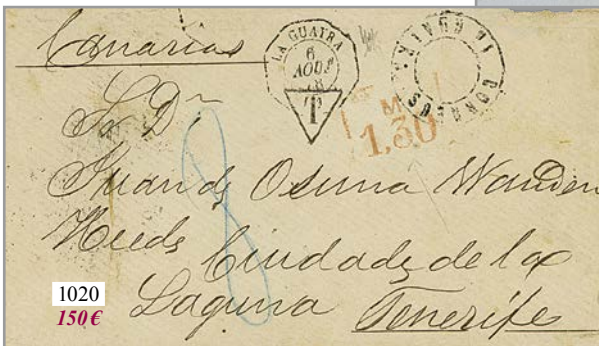 Canarias
LA GUAIRA
6
AOUT
T
M
1,30
CORREOS
Sr Dn
Juan de Osuna Wanden
Heeds Ciudad de la
8
Laguna Tenerife
1020
150 €